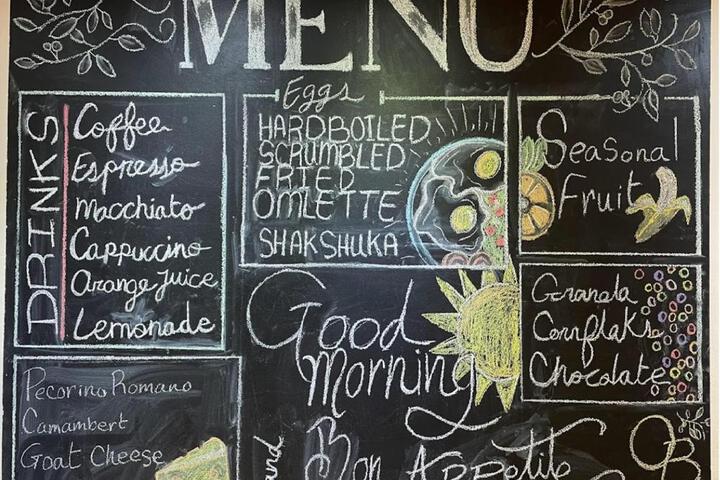 MENU
DRINKS
Coffee
Espresso
Macchiato
Cappuccino
Orange Juice
Lemonade
Eggs
HARDBOILED
SCRUMBLED
FRIED
OMLETTE
SHAKSHUKA
Seasonal
Fruit
Good
Morning
Granola
Cornflaks
Chocolate
Pecorino Romano
Camambert
Goat Cheese
and
Bon Appetite